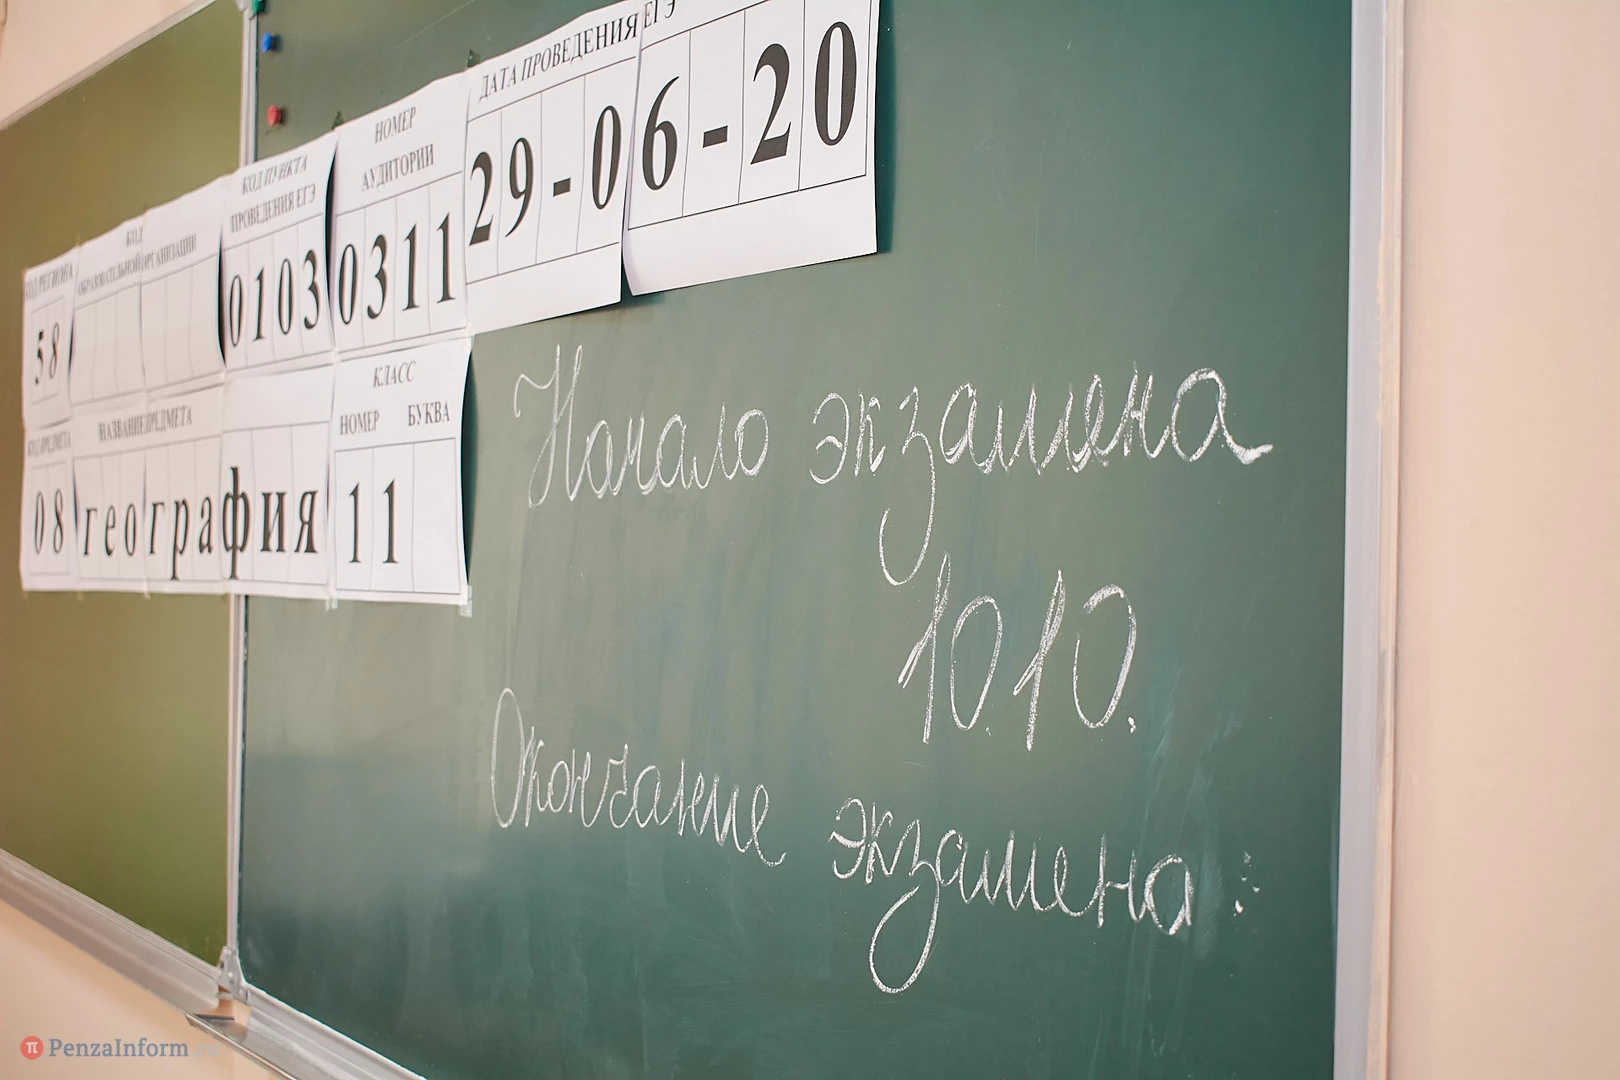 КОД РЕГИОНА
58
КОД
ОБРАЗОВАТЕЛЬНОЙ ОРГАНИЗАЦИИ
КОД ПУНКТА
ПРОВЕДЕНИЯ ЕГЭ
0103
НОМЕР
АУДИТОРИИ
0311
ДАТА ПРОВЕДЕНИЯ ЕГЭ
29-06-20
КОД ПРЕДМЕТА
08
НАЗВАНИЕ ПРЕДМЕТА
география
КЛАСС
НОМЕР БУКВА
11
Начало экзамена
10.10.
Окончание экзамена:
PenzaInform